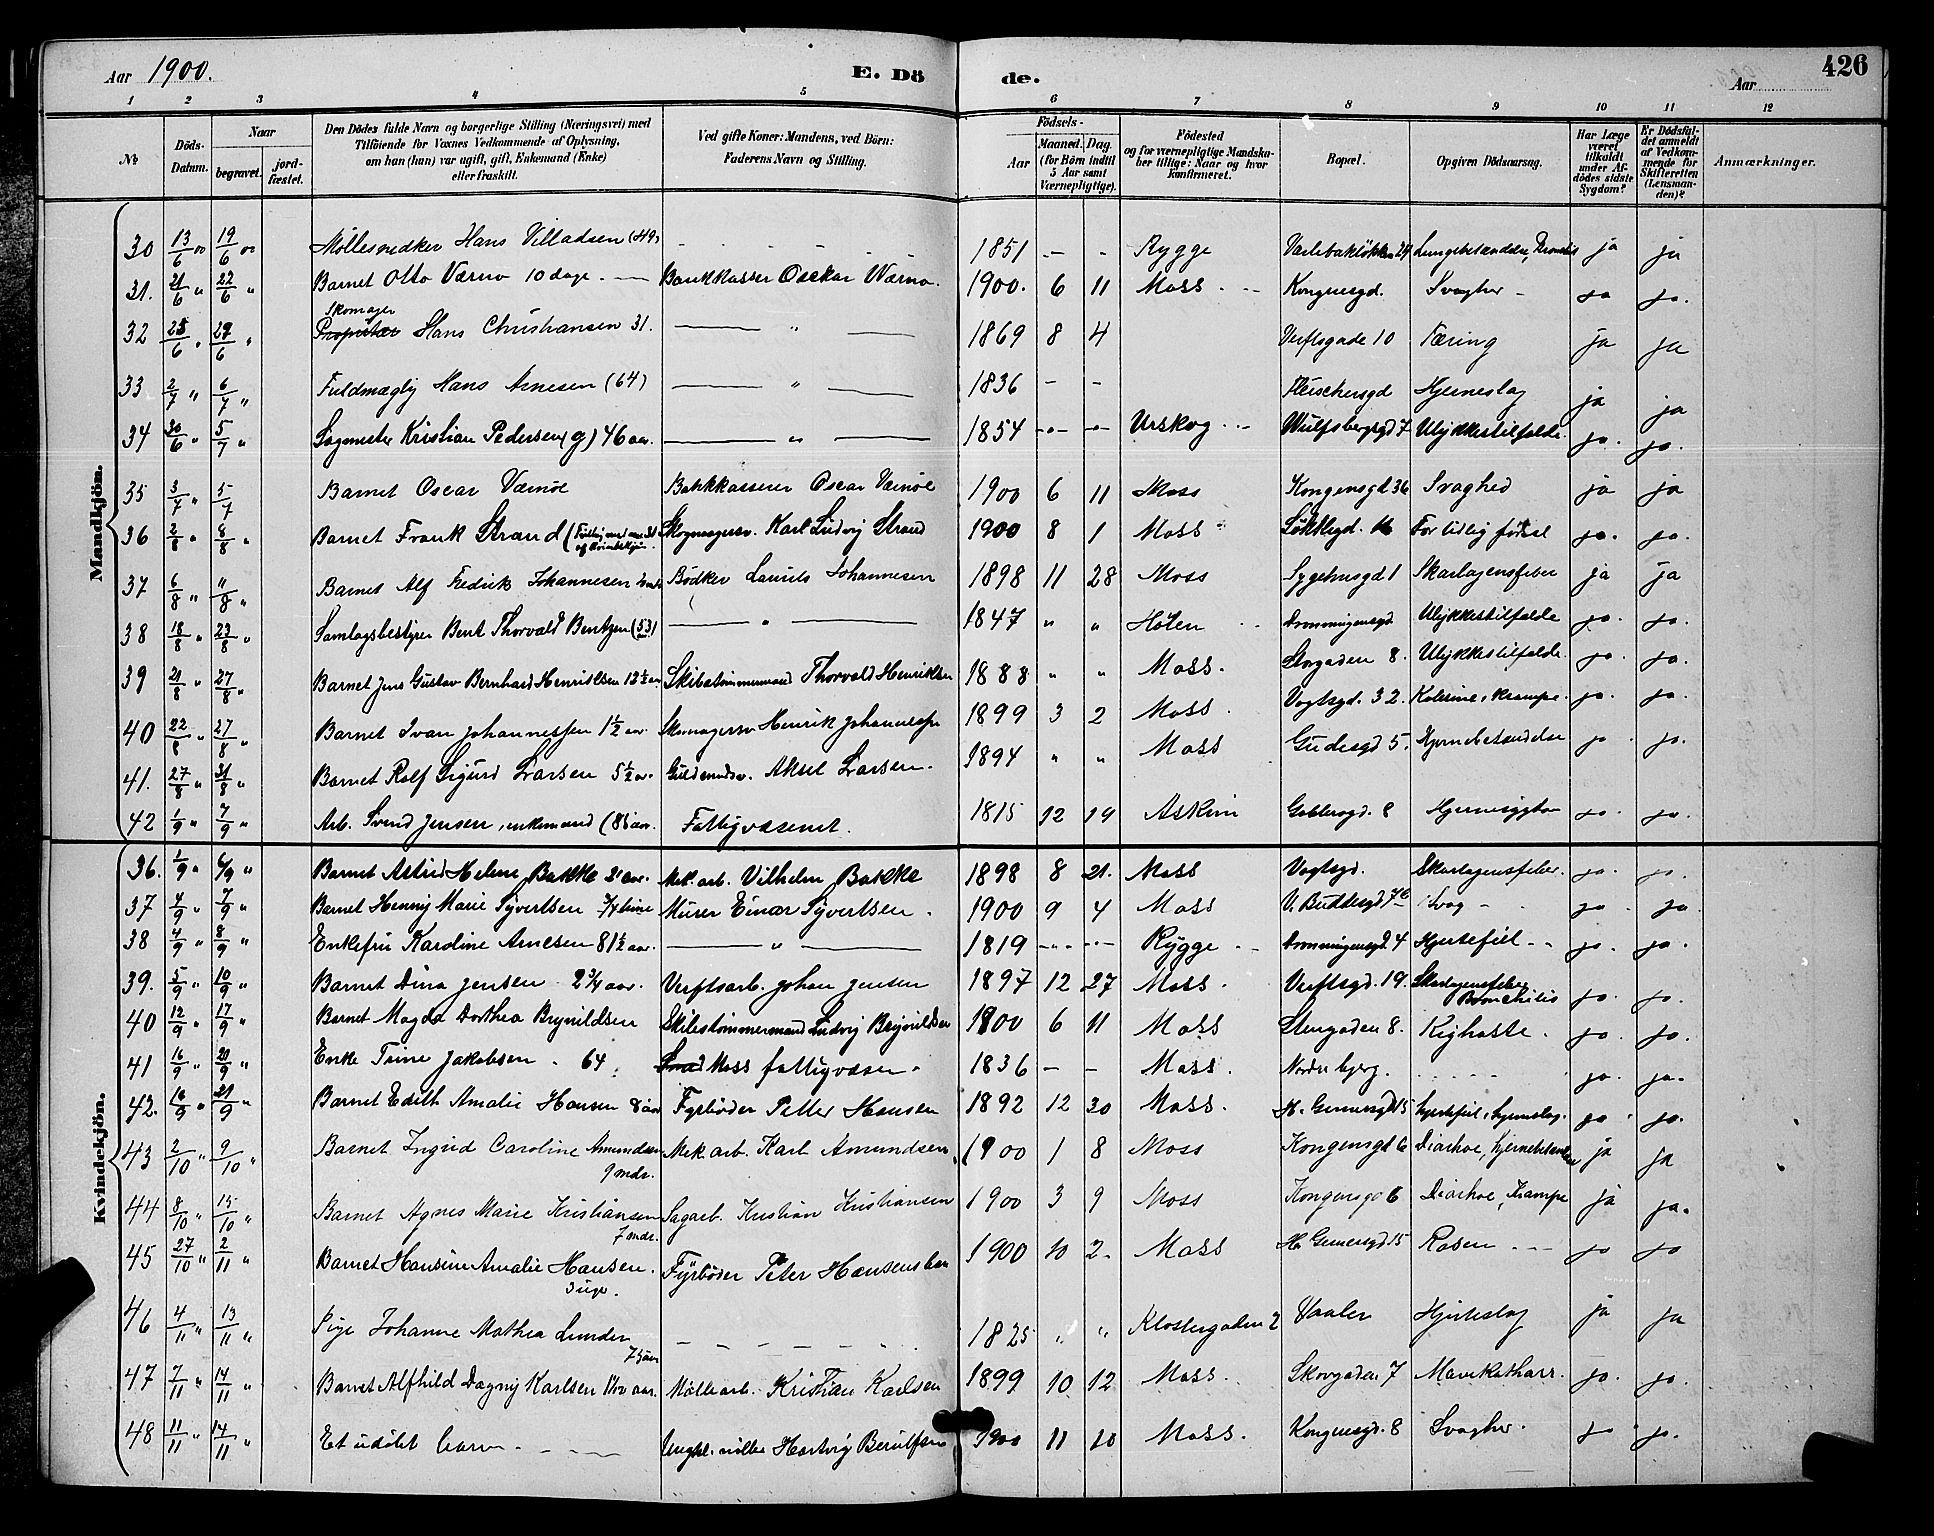 Aar 1900. E. Dö de. Aar 426
1 2 3 4 5 6 7 8 9 10 11 12
No
Döds-Datum.
Naar begravet. jordfæstet.
Den Dödes fulde Navn og borgerlige Stilling (Næringsvei) med Tilföiende for Voxnes Vedkommende af Oplysning, om han (hun) var ugift, gift, Enkemand (Enke) eller fraskilt.
Ved gifte Koner: Mandens, ved Börn: Faderens Navn og Stilling.
Födsels- Aar Maaned. Dag. (for Börn indtil 5 Aar samt Værnepligtige).
Födested og for værnepligtige Mandskaber tillige: Naar og hvor konfirmeret.
Bopæl.
Opgiven Dödsaarsag.
Har Læge været tilkaldt under Afdödes sidste Sygdom?
Er Dödsfaldet anmeldt af Vedkommende for Skifteretten (Lensmanden)?
Anmærkninger.
Mandkjön.
30 13/6 00 19/6 00 Møllesnedker Hans Villadsen (49) 1851 — - Rygge Varlebakløkken 24 Lungebetændelse, ja ja
31. 21/6 " 22/6 " Barnet Otto Værnø 10 dage. — Bankkasser Osckar Wærnø. 1900. 6 11 Moss. Kongensgd. Svaghed - ja ja.
32 25/6 " 29/6 " Skomager Proprietær Hans Christiansen 31. — " — 1869 8 4 Verftsgade 10 Tæring ja ja
33 2/7 " 6/7 " Fuldmægtig Hans Arnesen (64) — " — 1836 - - Fleischersgd Hjerneslag ja ja
34 30/6 " 5/7 " Sagmester Kristian Pedersen (g) 46 aar. — " — 1854 -"- -"- Urskog Wulfsbergsgd 7 Ulykkestilfælde. ja. ja.
35 3/7 " 5/7 Barnet Oscar Værnøe Bankkasserer Oscar Værnøe 1900 6 11 Moss Kongensgd 36 Svaghed ja ja
36 2/8 " 8/8 " Barnet Frank Strand Skomagersv. Karl Ludvig Strand 1900 8 1 Moss For tidlig fødsel ja. ja.
37 6/8 " "/8 " Barnet Alf Fredrik Johannesen Bødker Laurits Johannesen 1898 11 28 Moss Sygehusgd 1 Skarlagensfeber ja ja
38 18/8 " 23/8 " Samlagsbestyrer Bent Thorvald Bentzen (53) — " — 1847 " " Hølen Dronningensgd Ulykkestilfælde ja. ja.
39 21/8 " 27/8 " Barnet Jens Gustav Bernhard Henriksen 12 1/2 aar Skibstømmermand Thorvald Henriksen 1888 " " Moss. Storgaden 8. Ulykkestilfælde. ja. ja.
40 22/8 " 27/8 " Barnet Ivar Johannessen 1 1/2 aar. Skomagersv. Henrik Johannessen 1899 3 2 Moss. Vogtsgd. 32. Kolerine, krampe. ja. ja.
41. 27/8 " 31/8 " Barnet Rolf Sigurd Larsen 5 1/2 aar. Guldsmedsv. Aksel Larsen. 1894 " " Moss Gudesgd 5. Hjernebetændelse ja. ja.
42 1/9 " 7/9 " Arb. Svend Jensen, enkemand (85 aar. Fattigvæsenet. 1815 12 19 Askim 8 Hjernesygdom ja. ja.
Kvindekjön.
36. 1/9 " 6/9 " Barnet Astrid Helene Bakke 2 aar. Mek. arb. Vilhelm Bakke 1898 8 21. Moss Vogtsgd. Skarlagensfeber. ja. ja.
37 4/9 " 7/9 " Barnet Henny Marie Syvertsen 3/4 time Murer Einar Syvertsen. 1900 9 4 Moss V. Buddesgd 7 Svag - - ja. ja.
38 4/9 " 8/9 " Enkefru Karoline Arnesen 81 1/2 aar. — " — 1819 -"- -"- Rygge Dronningensgd. 4 Hjertefeil - - ja. ja.
39. 5/9 " 10/9 " Barnet Dina Jensen. 2 3/4 aar. Verftsarb. Johan Jensen 1897 12 27 Moss. Verftsgd. 19. Skarlagensfeber, Bronchitis ja. ja.
40 12/9 " 17/9 " Barnet Magda Dorthea Brynildsen Skibstømmermand Ludvig Brynildsen 1900 6 11 Moss. Storgaden 8. Kighoste. ja. ja.
41 16/9 " 20/9 " Enke Trine Jakobsen. 64 Moss fattigvæsen. 1836 - - Moss. Nordre bjerg. - - - - - ja. ja.
42. 16/9 " 21/9 " Barnet Edith Amalie Hansen 8 aar Fyrbøder Petter Hansen 1892 12 30 Moss. H. Gernersgd 15 hjertefeil, hjerneslag. ja. ja.
43 2/10 " 9/10 " Barnet Ingrid Caroline Amundsen 9 mdr. Mek arb. Karl Amundsen 1900 1 8 Moss Kongensgd 6 Diarhoe, hjernebetændelse ja ja
44 8/10 " 15/10 " Barnet Agnes Marie Kristiansen 7 mdr. Sagarb. Kristian Kristiansen 1900 3 9 Moss Kongensgd 6 Diarhoe, Krampe ja ja.
45 27/10 " 2/11 " Barnet Hansine Amalie Hansen. 3 uger. Fyrbøder Peter Hansens barn 1900 10 2. Moss H. Gernersgd 15 Rosen - - - ja ja
46 4/11 " 13/11 " Pige Johanne Mathea Lunder 75 aar - - - - - 1825 " " Klostergaden 2 Vaaler Hjerteslag ja ja
47 7/11 " 14/11 " Barnet Alfhild Dagny Karlsen Møllearb. Kristian Karlsen 1899 10 12 Moss. Skovgaden 7 Mavekatharr. ja. ja.
48 11/11 " 14/11 " Et udøbt barn - - - Ungkl. møller Hartvig Berulfsen 1900 11 10 Moss. Kongensgd. 8 Svaghed. ja ja.